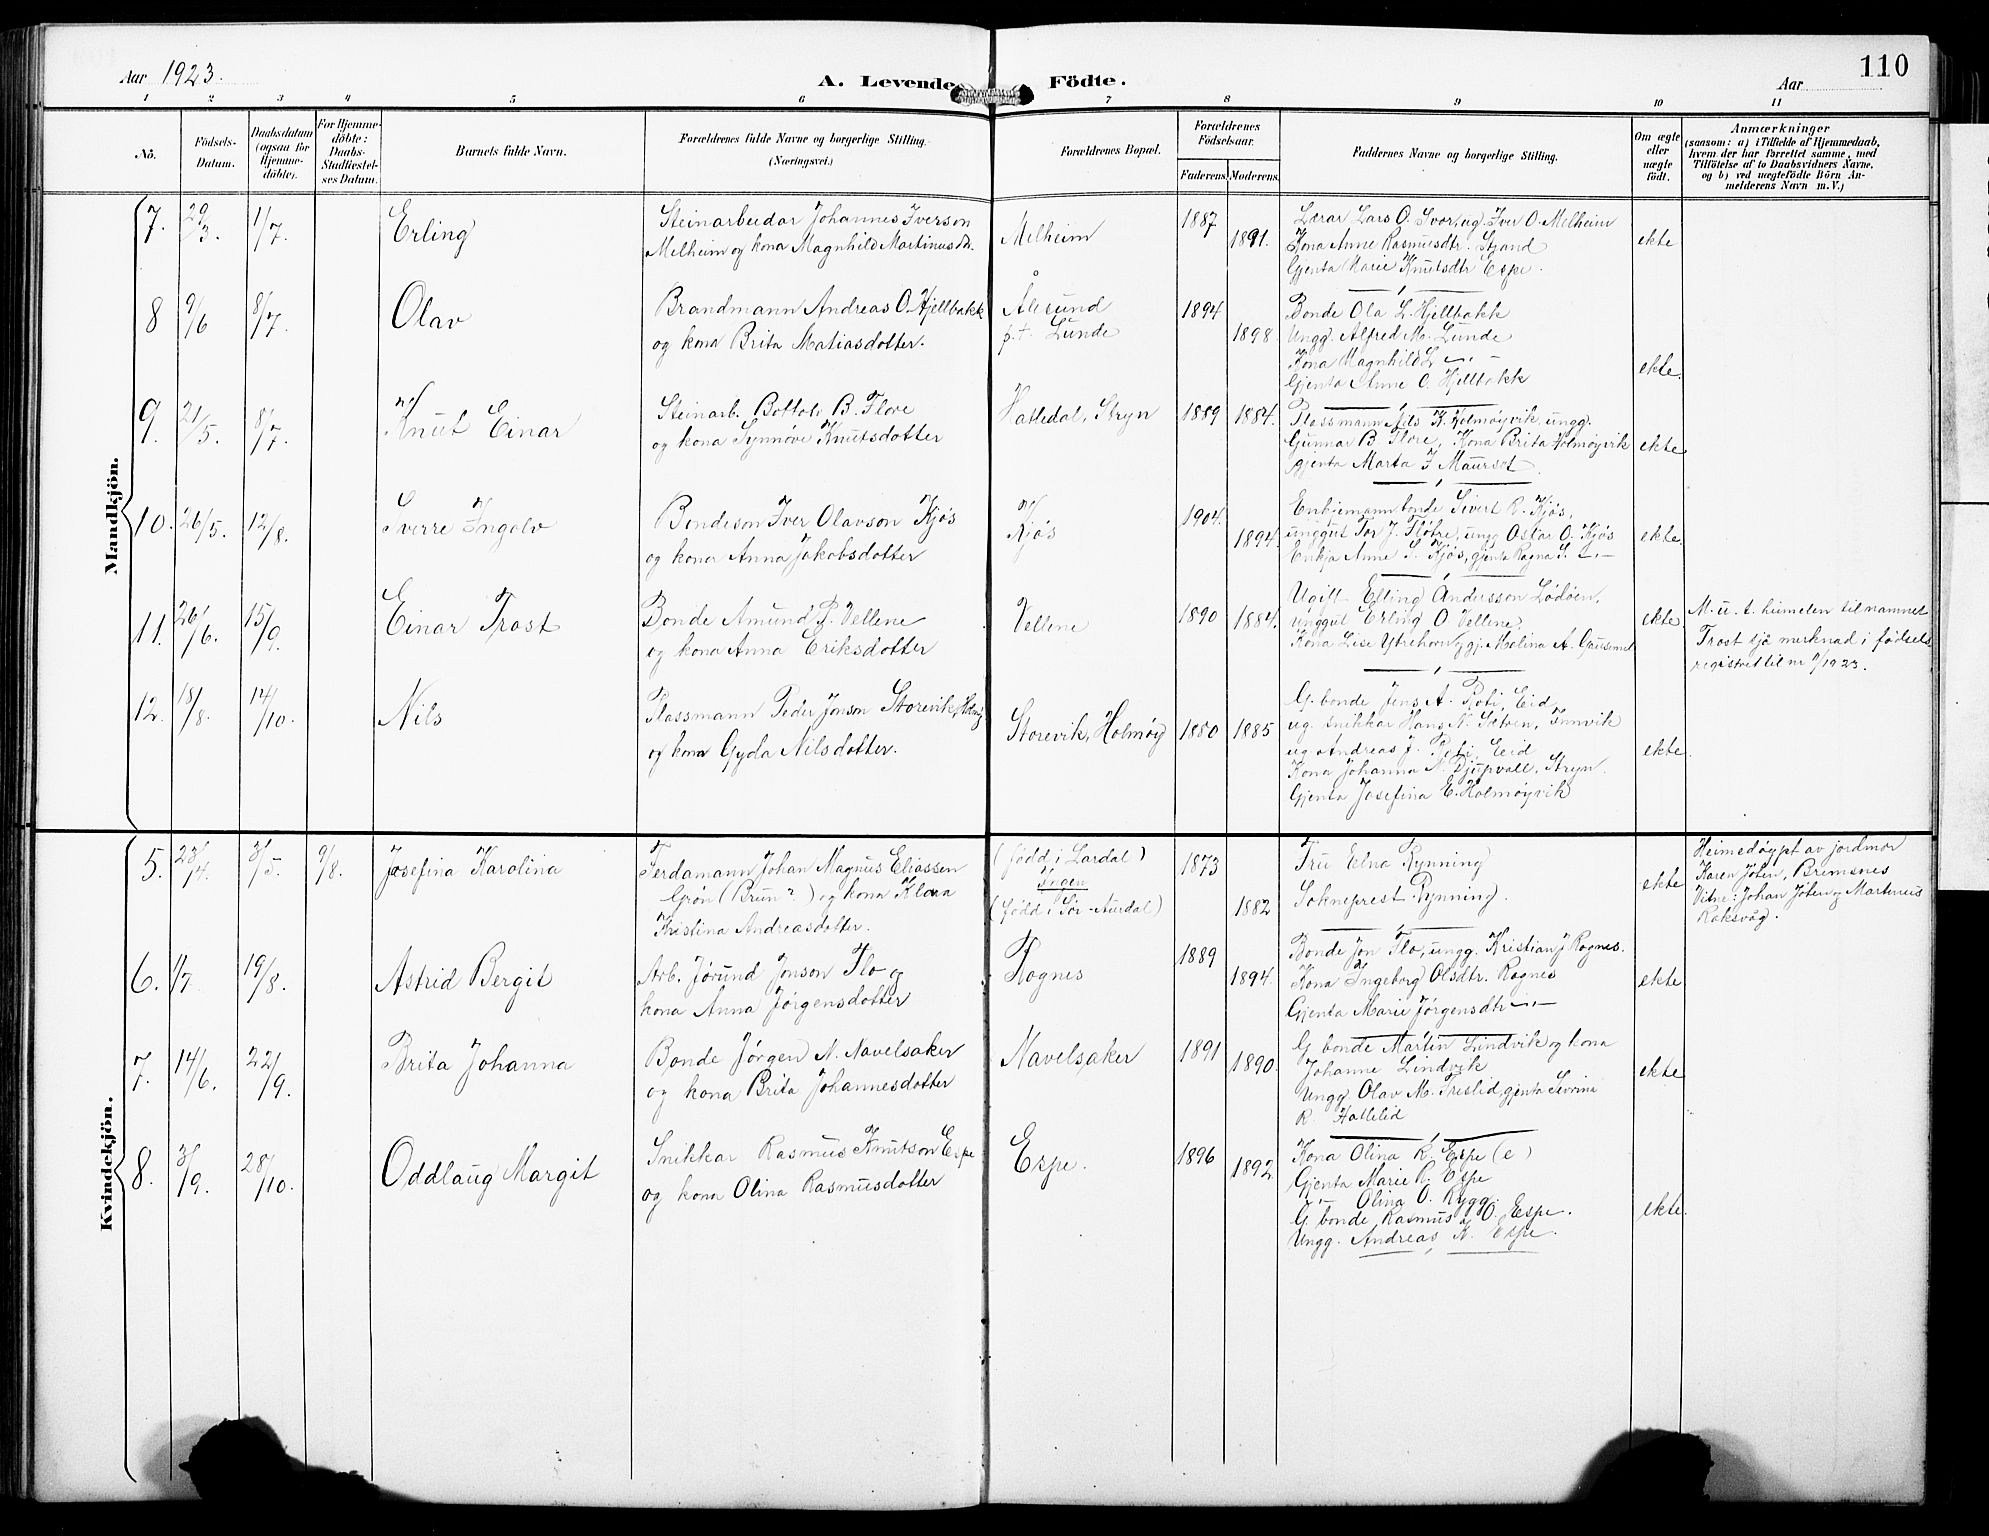 Aar 1923.
A. Levende Födte.
Aar
110
1 2 3 4 5 6 7 8 9 10 11
Nö.
Födsels-
Datum.
Daabsdatum
(ogsaa for
Hjemme-
döbte).
For Hjemme-
döbte:
Daabs-
Stadfæstel-
ses Datum.
Barnets fulde Navn.
Forældrenes fulde Navne og borgerlige Stilling.
(Næringsvei.)
Forældrenes Bopæl.
Forældrenes
Födselsaar.
Faderens.
Moderens.
Faddernes Navne og borgerlige Stilling.
Om ægte
eller
uægte
födt.
Anmærkninger
(saasom: a) i Tilfælde af Hjemmedaab,
hvem der har forrettet samme, med
Tilföielse af to Daabsvidners Navne,
og b) ved uægtefödte Börn An-
melderens Navn m. V.)
Mandkjön.
7. 29/3. 1/7. Erling
Steinarbeidar Johannes Iverson
Melheim og kona Magnhild Martinusdtr.
Melheim
1887
1891.
Lærar Lars O. Svor, ug. Iver O. Melheim
Kona Anne Rasmusdtr.
Gjenta Marie Knutsdtr Espe.
ekte
8 9/6 8/7. Olav
Brandmann Andreas O. Hjellbakk
og kona Brita Matiasdotter.
Ålesund
p.t. Lunde
1894
1898.
Bonde Ola L. Hjellbakk
Ungg. Alfred M. Lunde
Kona Magnhild L —"—
Gjenta Anne O. Hjellbakk
ekte.
9. 21/5. 8/7. Knut Einar
Steinarb. Bottolv B. Flore
og kona Synnøve Knutsdotter
Hatledal, Stryn
1889
1884.
Plassmann Nils K. Holmøyvik, ungg.
Gunnar B. Flore, Kona Brita Holmøyvik
gjenta Marta J. Maurset
ekte
10. 26/5. 12/8. Sverre Ingolv
Bondeson Iver Olavson Kjøs
og kona Anna Jakobsdotter
Kjøs
1904.
1894.
Enkjemann bonde Sivert R. Kjøs,
unggut Tor J. Fløtre, ungg Oskar O. Kjøs
Enkja Anne S. Kjøs, gjenta Ragna S. —"—
ekte.
11. 26/6. 15/9. Einar Trost
Bonde Amund P. Vellene
og kona Anna Eriksdotter
Vellene
1890
1884.
Ugift Elling Andersson Lødøen,
unggut Erling O. Vellene,
Kona Lise Ytrehorn, gj. Molina A.
ekte.
M. u. t. heimelen til namnet
Trost sjå merknad i fødsels
registret til nr 9/1923.
12. 18/8. 14/10. Nils
Plassmann Peder Jonson Storevik,
og kona Gyda Nilsdotter.
Storevik, Holmøy
1880
1885
G. bonde Jens A. Roti, Eid
ug. snikkar Hans N. Sætren,
ug. Andreas J. Roti, Eid
Kona Johanna N. Djupvall, Stryn.
Gjenta Josefina E. Holmøyvik
ekte.
Kvindekjön.
5. 23/4. 3/5. 9/8. Josefina Karolina
Ferdamann Johan Magnus Eliassen
Grøn (Brun?) og kona Klara
Kristina Andreasdotter.
(født i Lardal)
Ingen
(født i Sør-Aurdal)
1873
1882
Fru Elna Rynning
Sokneprest Rynning.
ekte
Heimedøypt av jordmor
Karen Jøten, Bremsnes
Vitne: Johan Jøten og Martinus
Raksvåg.
6. 1/7 19/8. Astrid Bergit
Arb. Jørund Jonson Flo og
kona Anna Jørgensdotter
Rognes
1889
1894.
Bonde Jon Flo, ungg. Kristian J. Rognes.
Kona Ingeborg Olsdtr. Rognes
Gjenta Marie Jørgensdtr —"—
ekte
7. 14/6. 22/9. Brita Johanna
Bonde Jørgen N. Navelsaker
og kona Brita Johannesdotter
Navelsaker
1891
1890.
G. bonde Martin Lindvik og kona
Johanne Lindvik
Ungg Olav M. Treslid, gjenta Severine
R. Hatlelid
ekte
8. 3/9. 28/10. Oddlaug Margit
Snikkar Rasmus Knutson Espe
og kona Olina Rasmusdotter
Espe.
1896
1892.
Kona Olina R. Espe (e)
Gjenta Marie R. Espe
—"— Olina O. Rygg.
G. bonde Rasmus O. Espe.
Ungg. Andreas K. Espe.
ekte.